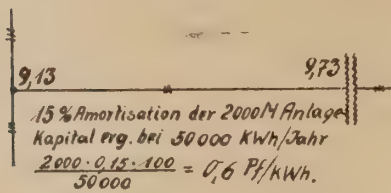 9,13 9,73
15 % Amortisation der 2000 M Anlage
Kapital erg. bei 50 000 KWh/Jahr
2000 · 0,15 · 100 / 50 000 = 0,6 Pf/KWh.